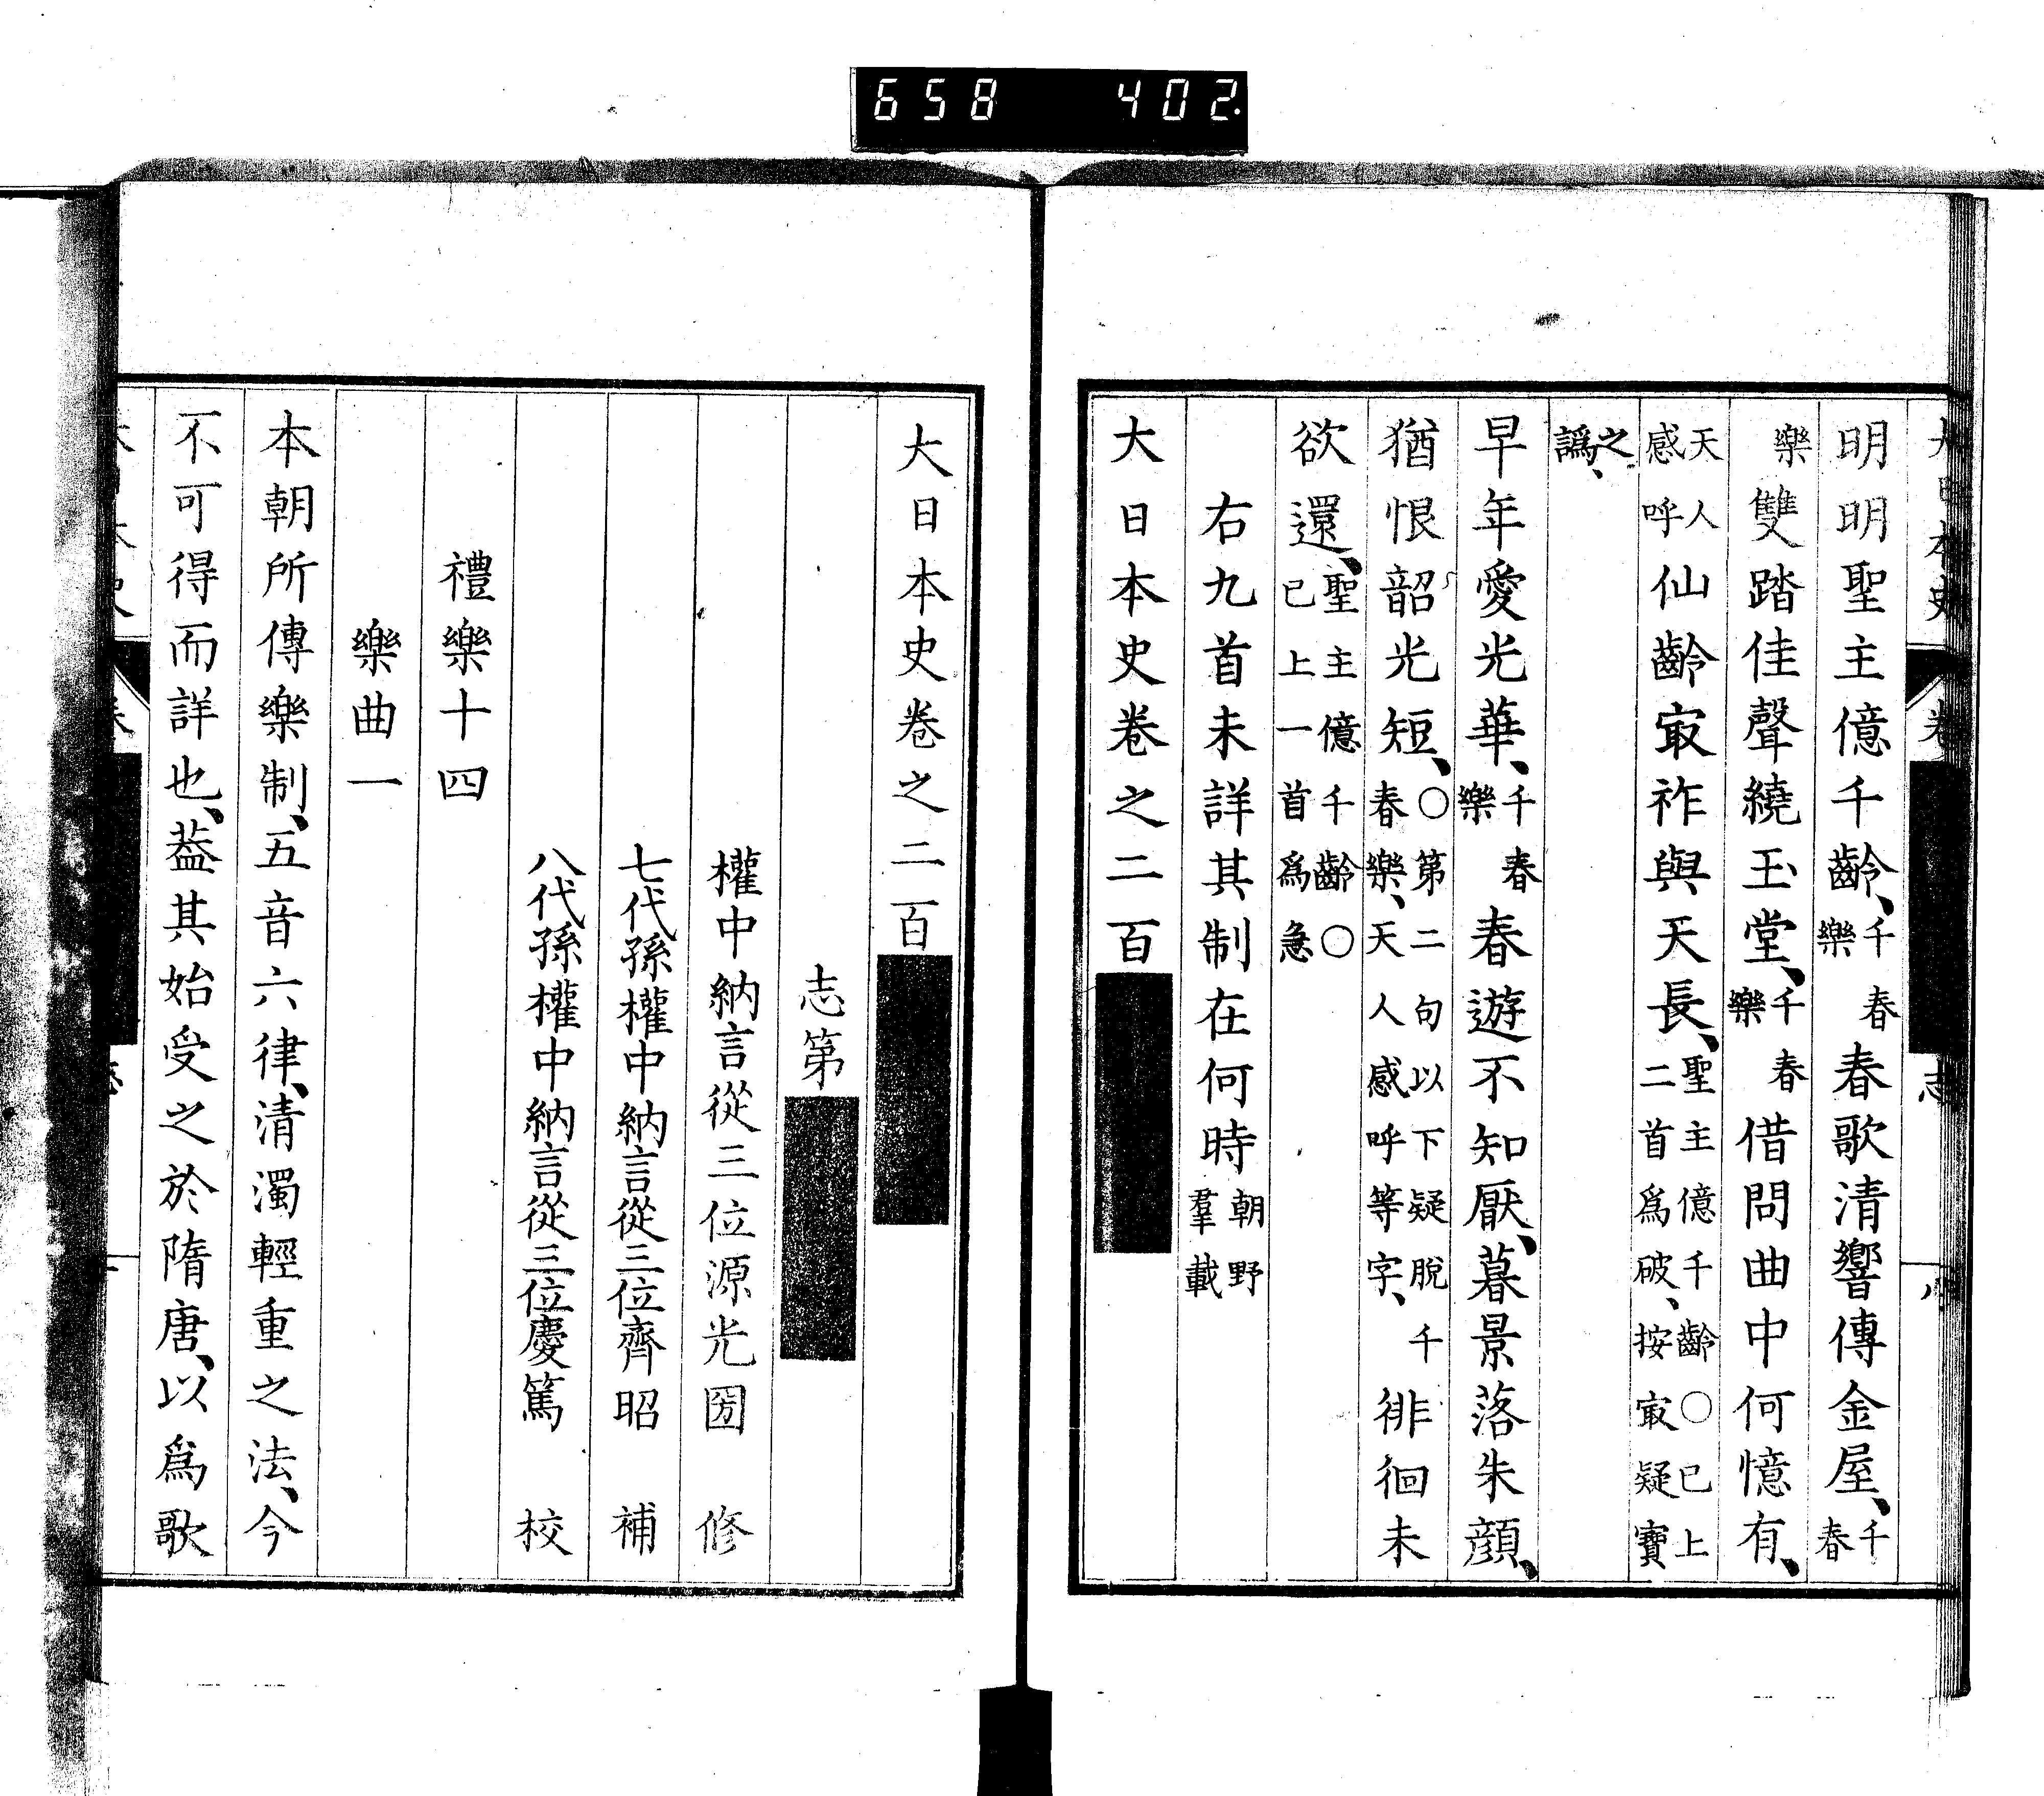 658 402.
明明聖主億千齡、千春樂春歌清響傳金屋、千春
樂雙踏佳聲繞玉堂、千春樂借問曲中何憶有、
天人感呼仙齡㝡祚與天長、聖主億千齡○已上二首爲破、按㝡疑寶
之譌、
早年愛光華、千春樂春遊不知厭、暮景落朱顔、
猶恨韶光短、○第二句以下疑脫千春樂、天人感呼等字、徘徊未
欲還、聖主億千齡○已上一首爲急
右九首未詳其制在何時朝野羣載
大日本史卷之二百
大日本史卷之二百
志第
權中納言從三位源光圀 修
七代孫權中納言從三位齊昭 補
八代孫權中納言從三位慶篤 校
禮樂十四
樂曲一
本朝所傳樂制、五音六律、清濁輕重之法、今
不可得而詳也、葢其始受之於隋唐、以爲歌